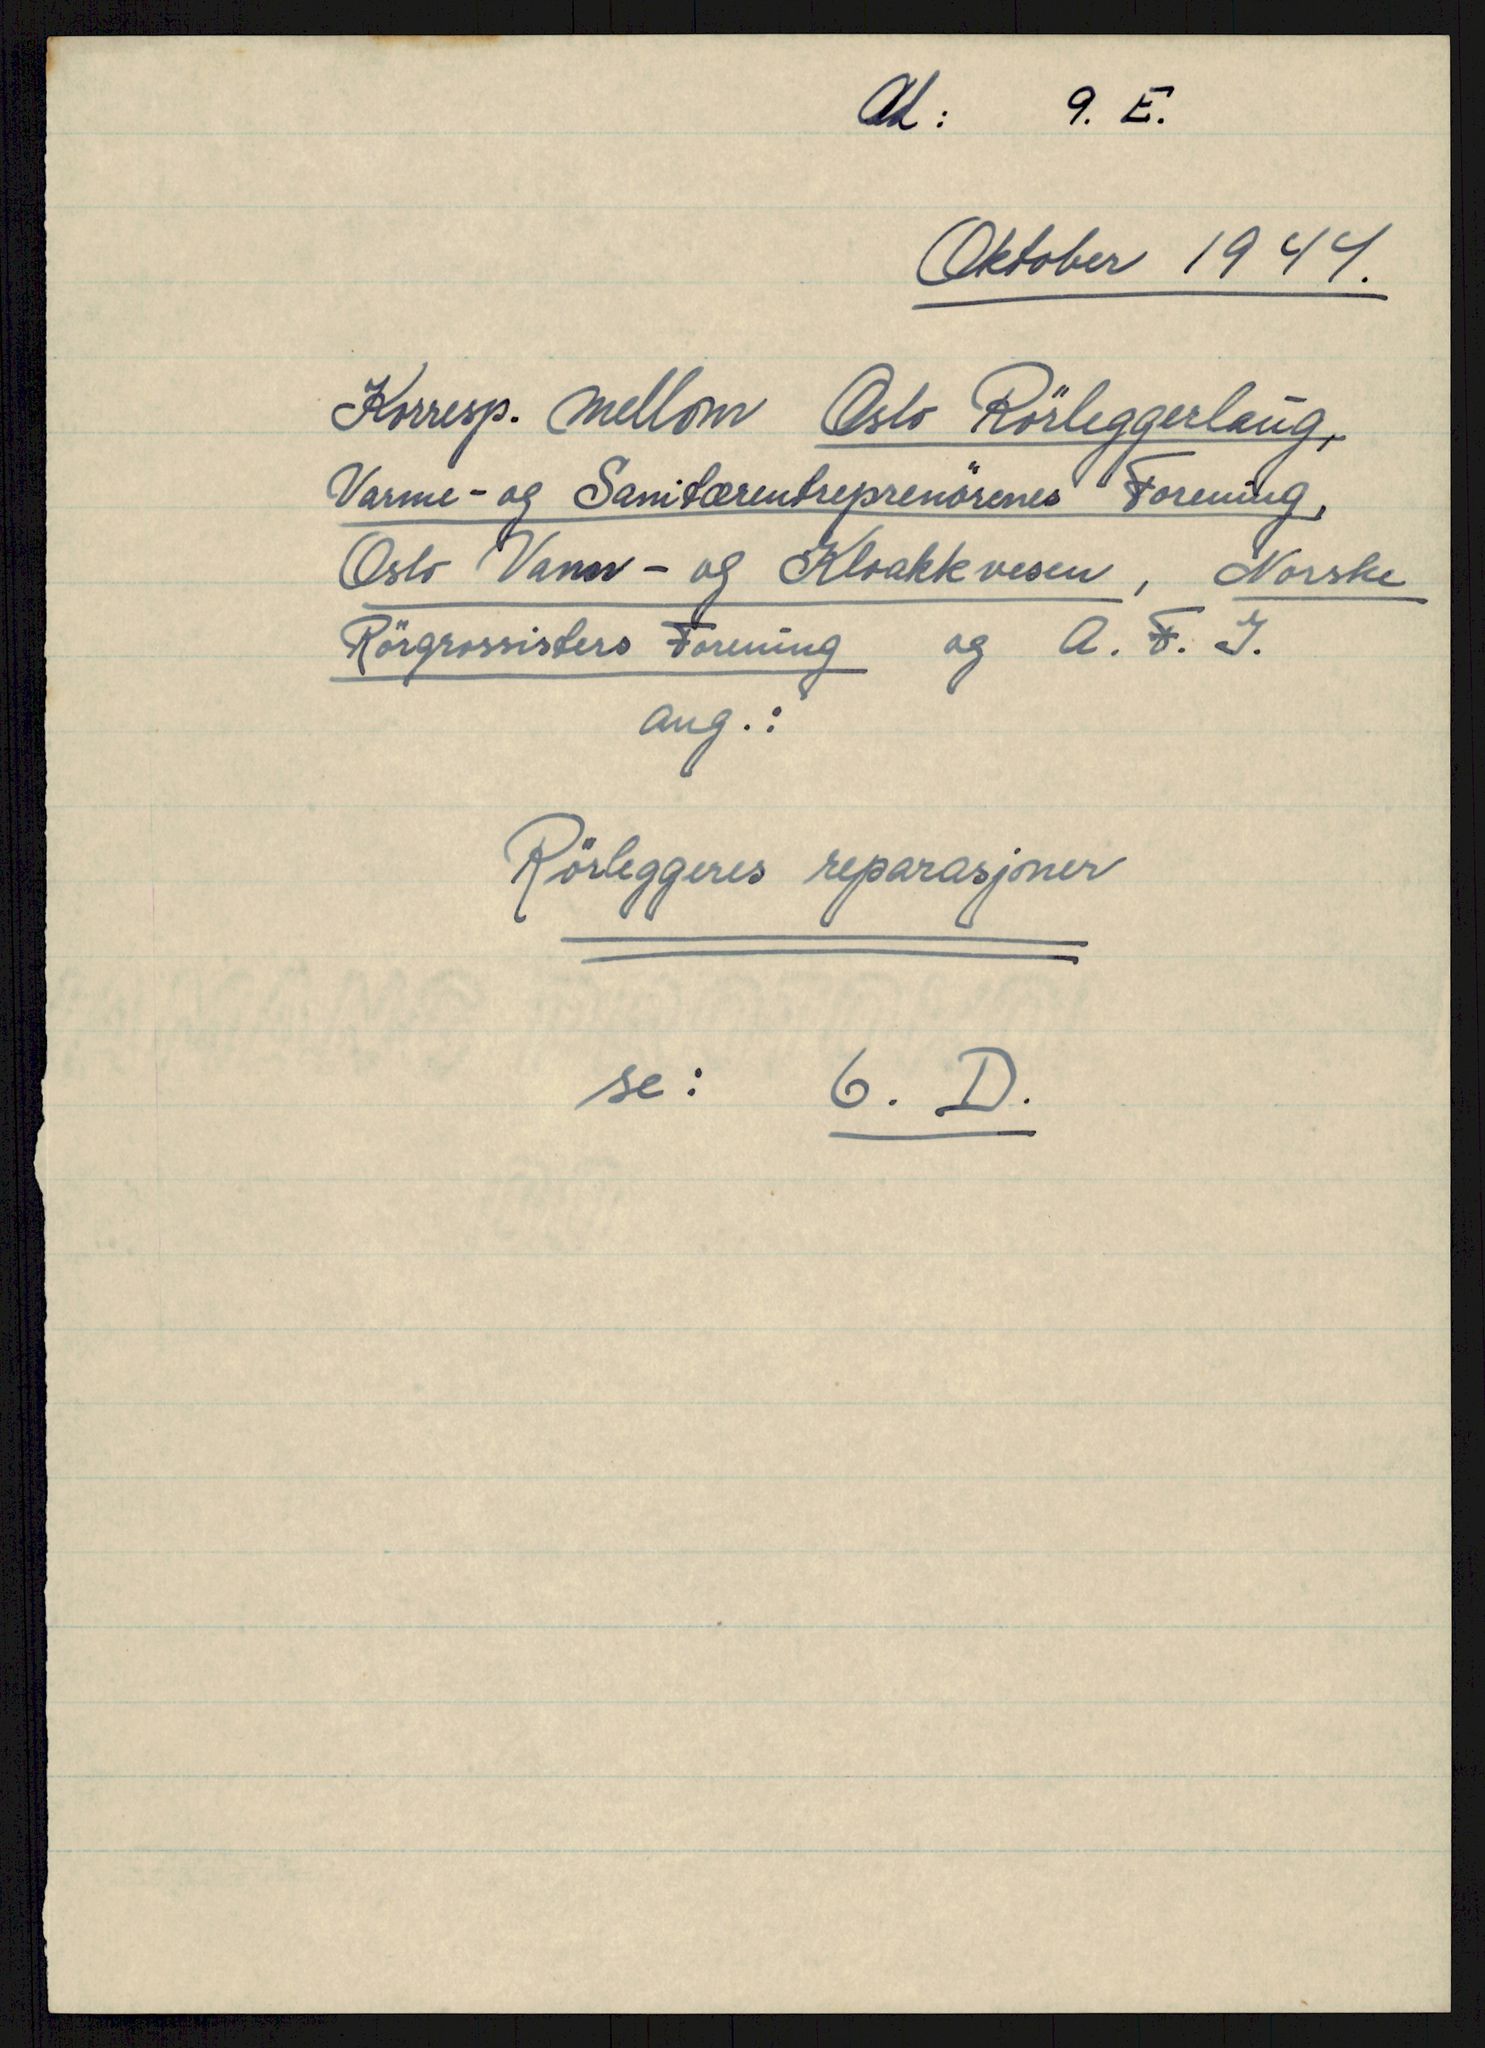 Ad: 9. E.
Oktober 1944.
Korresp. mellom Oslo Rörleggerlaug,
Varme- og Sanitærentreprenörenes Forening,
Oslo Vann- og Kloakkvesen, Norske
Rörgrossisters Forening og A. F. I.
ang.:
Rörleggeres reparasjoner
se: 6. D.